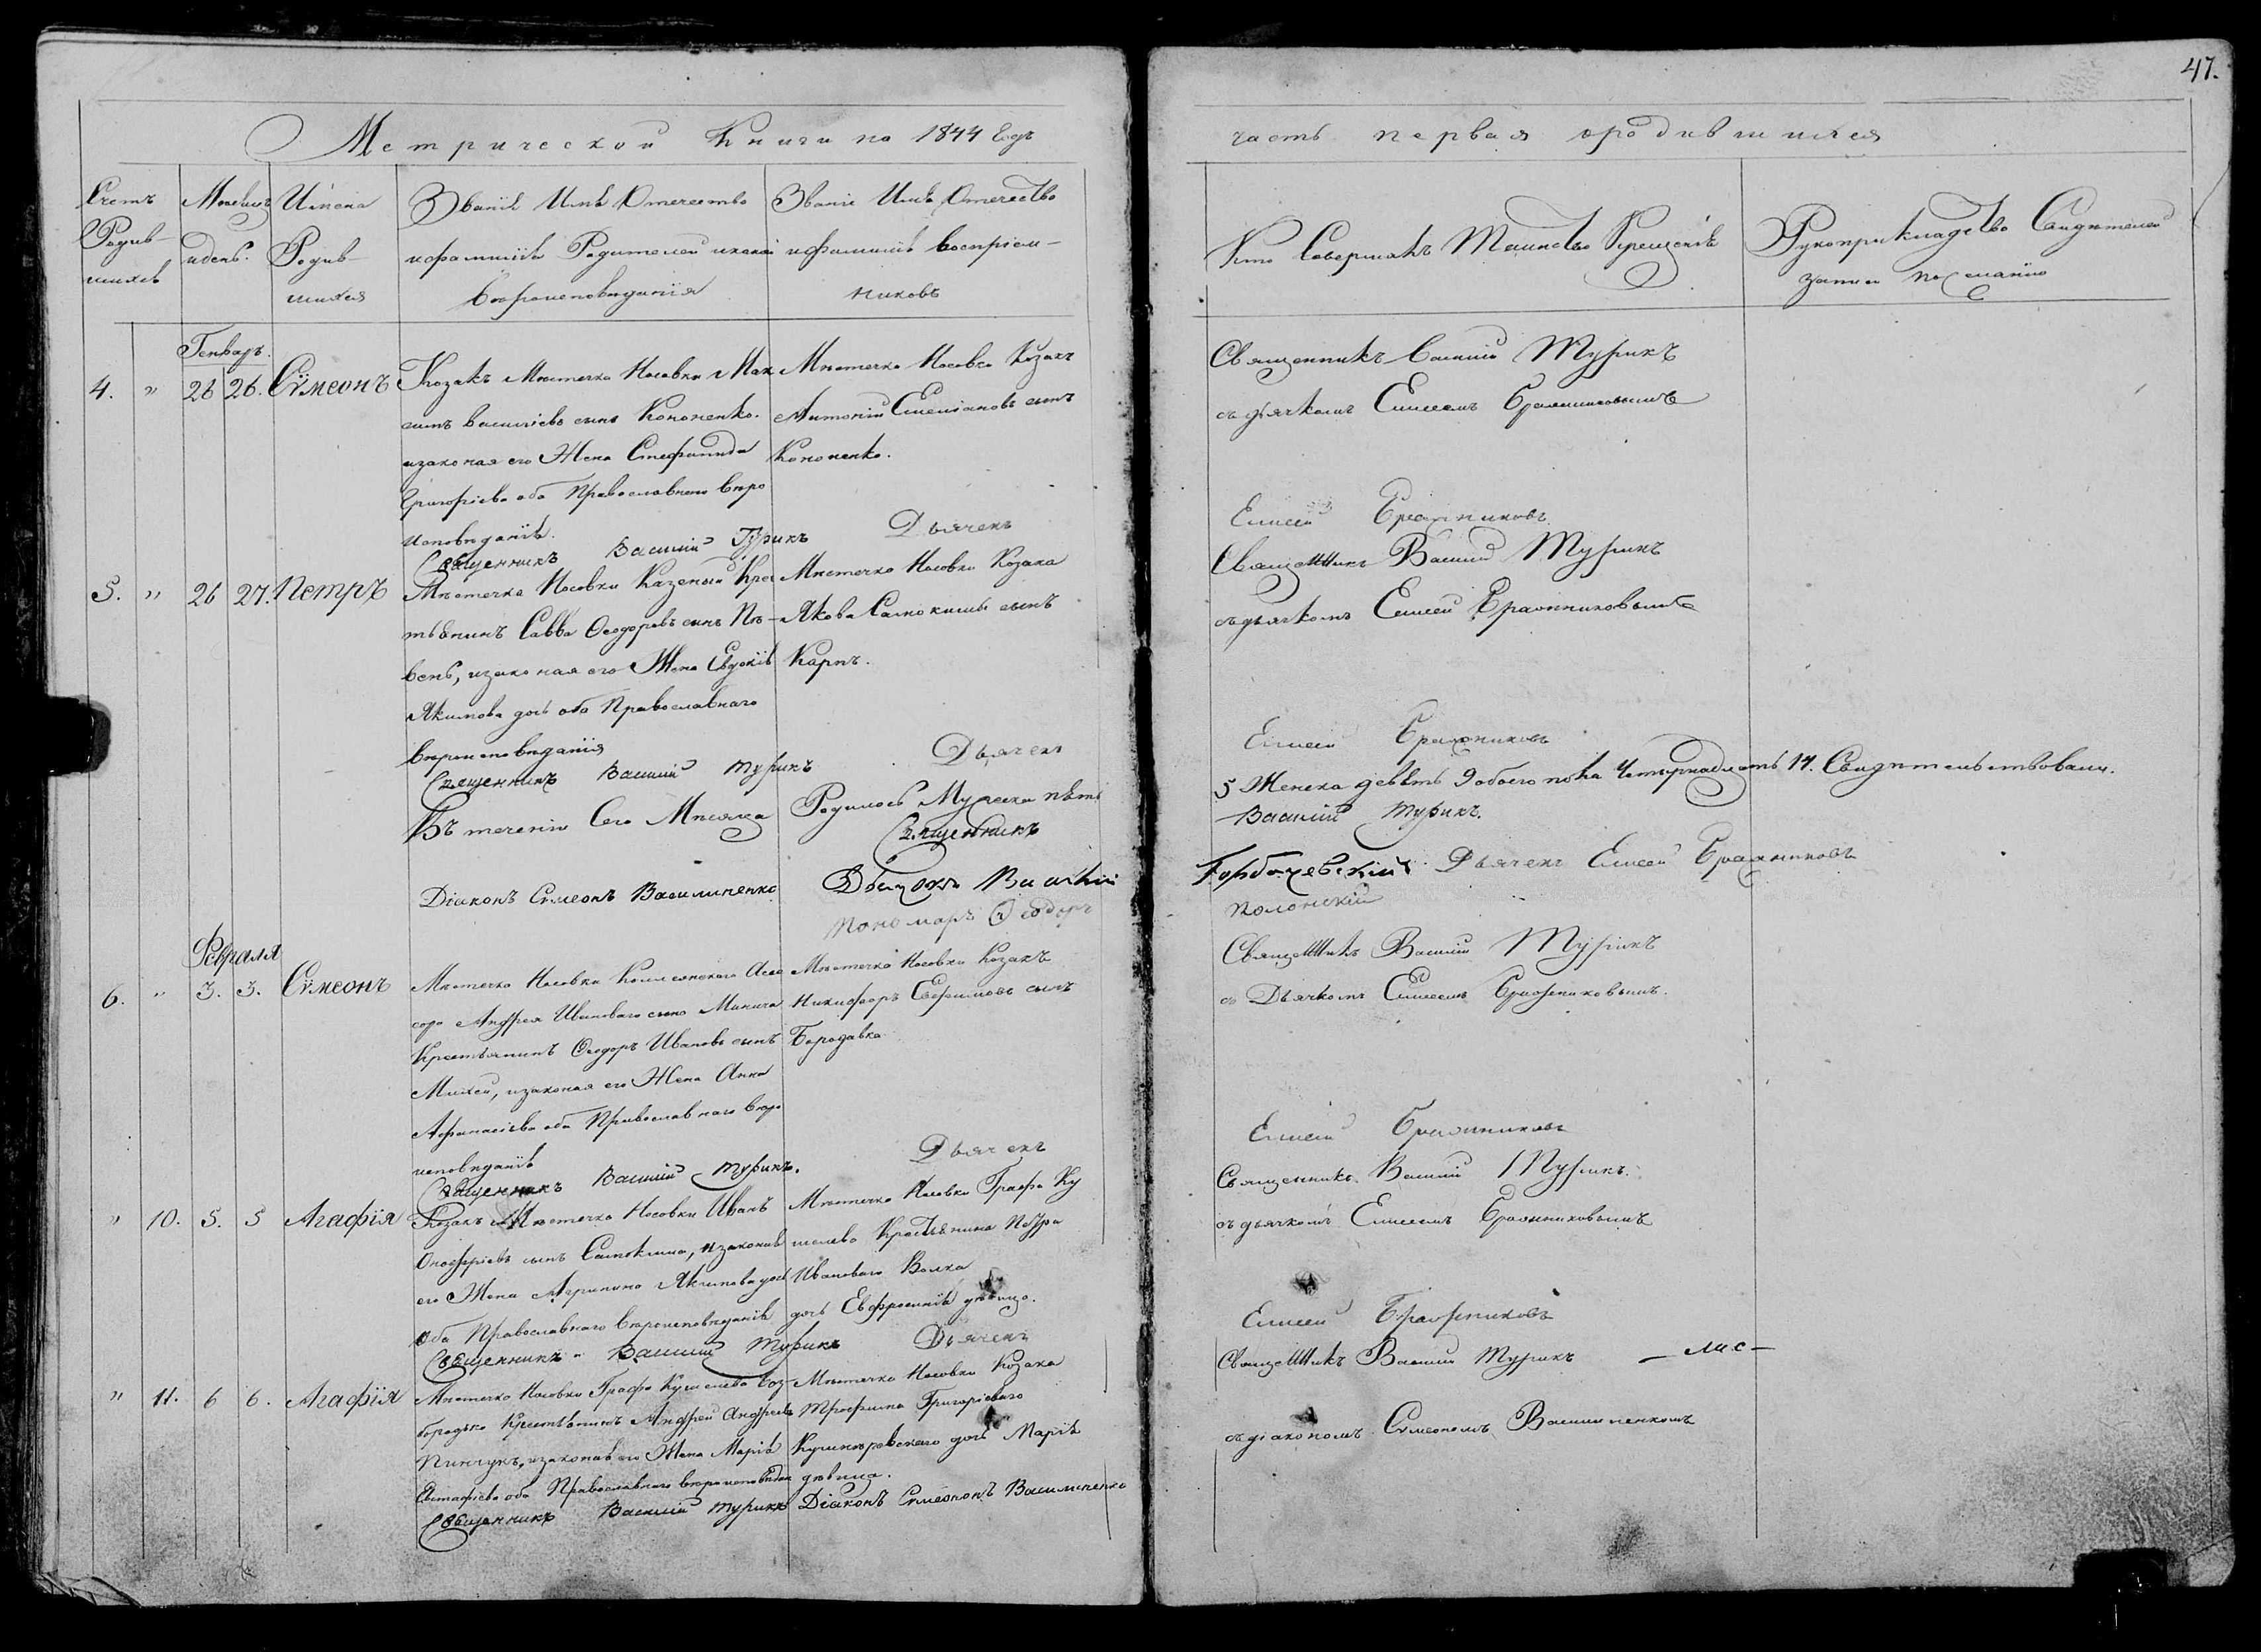 47.
Метрической Книги на 1844 Годъ
часть первая ородившихся
Счетъ Родив-шихся
Месяцъ идень.
Имена Родив-шихся
Званіе Имя Отечество
ифамилія Родителей икакой
вероисповеданія
Званіе Имя Отечество
ифамилія воспріем-
никовъ
Кто Совершалъ Таинство Крещенія
Рукоприкладство Свидетелей
записи
Генваръ.
4. " 26 26. Сѵмеонъ
Козакъ Местечка Носовки Мак
симъ Василіевъ сынъ Кононенко.
изаконая его Жена Стефанида
Григоріева оба Православнаго веро
исповеданія.
Священникъ Василій Турикъ
Местечка Носовки Козакъ
Антоній Емеліановъ сынъ
Кононенко.
Дьячекъ
Священникъ Василій Турикъ
съ дьячкомъ Елисеемъ Бражниковымъ
Елисей Бражниковъ
5. " 26 27. Петръ
Местечка Носовки Казеный Крес
тьянинъ Савва Феодоровъ сынъ
изаконая его Жена Евдокія
Якимова дочь оба Православнаго
вероисповеданія
Священникъ Василій Турикъ
Местечка Носовки Козака
Якова Самокиши сынъ
Карпъ.
Дьячекъ
Священникъ Василій Турикъ
съ дьячкомъ Елисей Бражниковымъ
Елисей Бражниковъ
Въ теченіи Сего Месяца Родилось Мужеска пять
5 Женска девять 9 обоего пола Четырнадцать 14. Свидетельствовали.
Священникъ Василій Турикъ.
Діаконъ Сѵмеонъ Василиненко
Горбачевскій Дьячекъ Елисей Бражниковъ
Пономаръ Феодоръ Полонскій
Февраля
6. " 3. 3. Сѵмеонъ
Местечка Носовки Коллежскаго Асес
сора Андрея Ивановаго сына
Крестьянинъ Феодоръ Ивановъ сынъ
Михей, изаконая его Жена Анна
Афанасіева оба Православнаго веро
исповеданія
Священникъ Василій Турикъ.
Местечка Носовки Козакъ
Никифоръ Евфимовъ сынъ
Бородавка
Дьячекъ
Священникъ Василій Турикъ
съ Дьячкомъ Елисеемъ Бражниковымъ.
Елисей Бражниковъ
" 10. 5. 5 Агафія
Козакъ Местечка Носовки Иванъ
Онофріевъ сынъ Самокиша, изаконая
его Жена Агрипина Якимова дочь
оба Православнаго вероисповеданія
Священникъ Василій Турикъ
Местечка Носовки Графа Ку
шелева Крестьянина Петра
Ивановаго Волка
дочь Евфросинія девица.
Дьячекъ
Священникъ Василій Турикъ.
съ дьячкомъ Елисеемъ Бражниковымъ
Елисей Бражниковъ
" 11. 6 6. Агафія
Местечка Носовки Графа Кушелева Без-
бородька Крестьянинъ Андрей Андреевъ
Пинчукъ, изаконая его Жена Марія
Евстафіева оба Православнаго вероисповедан
Священникъ Василій Турикъ
Местечка Носовки Козака
Трофима Григоріеваго
дочь Марія
девица.
Діаконъ Сѵмеонъ Василиненко
Священникъ Василій Турикъ
съ діакономъ Сѵмеономъ Василиненкомъ